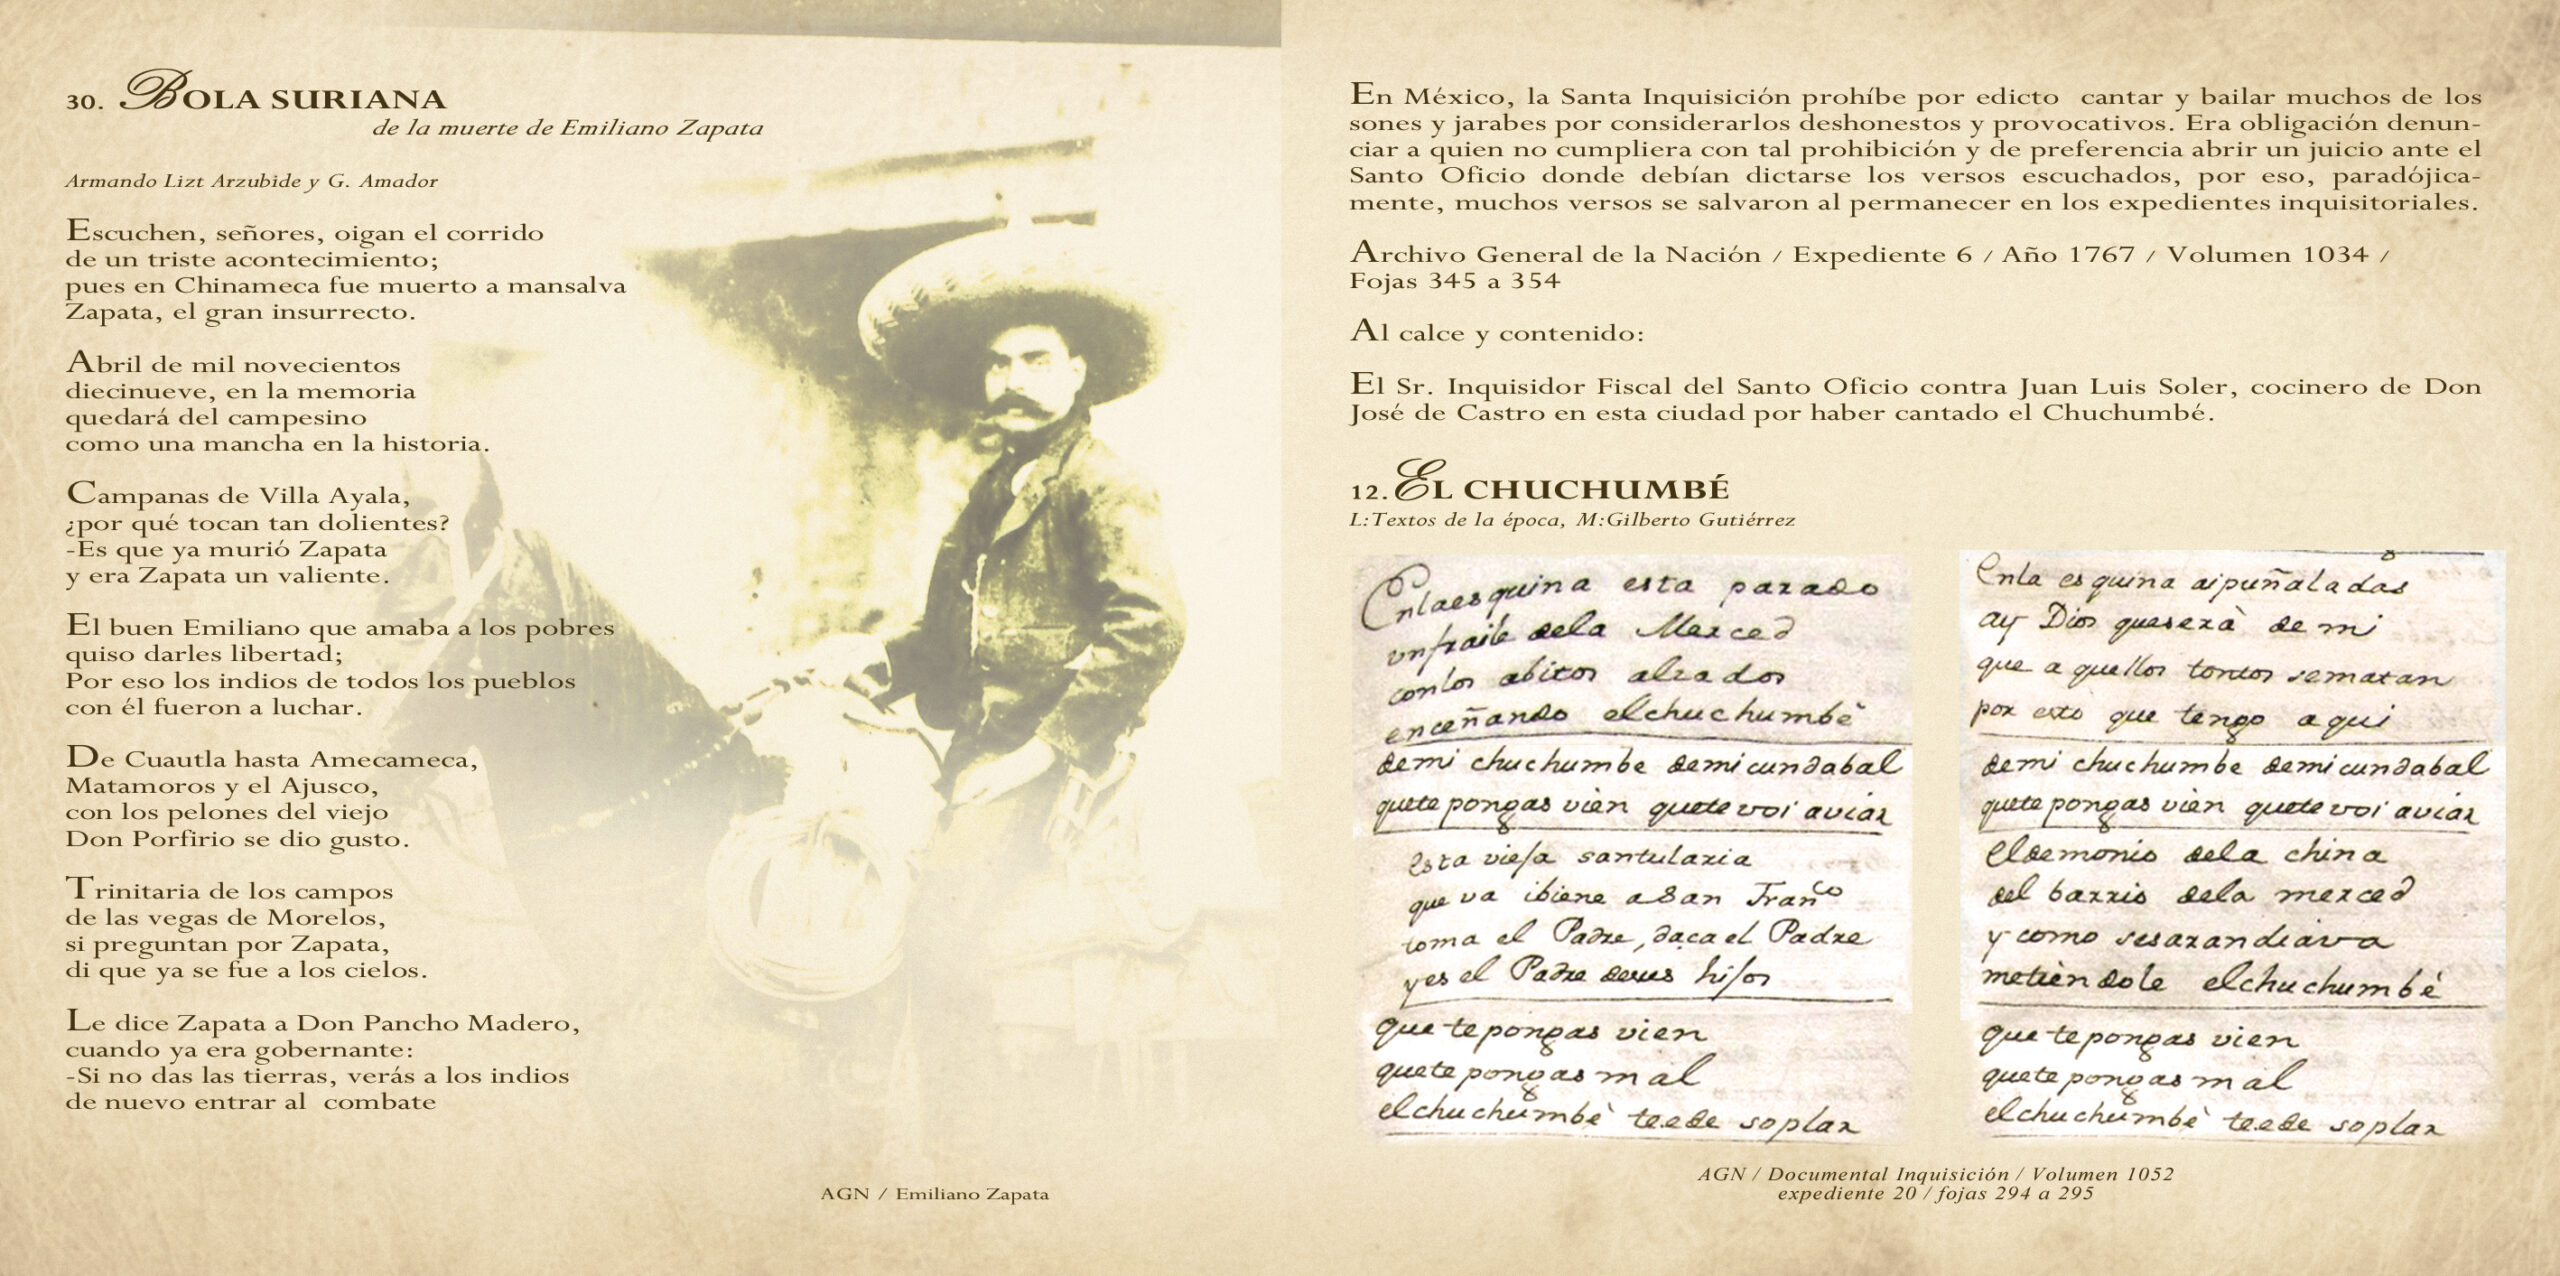 30. BOLA SURIANA
de la muerte de Emiliano Zapata
Armando Lizt Arzubide y G. Amador
Escuchen, señores, oigan el corrido
de un triste acontecimiento;
pues en Chinameca fue muerto a mansalva
Zapata, el gran insurrecto.
Abril de mil novecientos
diecinueve, en la memoria
quedará del campesino
como una mancha en la historia.
Campanas de Villa Ayala,
¿por qué tocan tan dolientes?
-Es que ya murió Zapata
y era Zapata un valiente.
El buen Emiliano que amaba a los pobres
quiso darles libertad;
Por eso los indios de todos los pueblos
con él fueron a luchar.
De Cuautla hasta Amecameca,
Matamoros y el Ajusco,
con los pelones del viejo
Don Porfirio se dio gusto.
Trinitaria de los campos
de las vegas de Morelos,
si preguntan por Zapata,
di que ya se fue a los cielos.
Le dice Zapata a Don Pancho Madero,
cuando ya era gobernante:
-Si no das las tierras, verás a los indios
de nuevo entrar al combate
AGN / Emiliano Zapata
En México, la Santa Inquisición prohíbe por edicto cantar y bailar muchos de los
sones y jarabes por considerarlos deshonestos y provocativos. Era obligación denun-
ciar a quien no cumpliera con tal prohibición y de preferencia abrir un juicio ante el
Santo Oficio donde debían dictarse los versos escuchados, por eso, paradójica-
mente, muchos versos se salvaron al permanecer en los expedientes inquisitoriales.
Archivo General de la Nación / Expediente 6 / Año 1767 / Volumen 1034 /
Fojas 345 a 354
Al calce y contenido:
El Sr. Inquisidor Fiscal del Santo Oficio contra Juan Luis Soler, cocinero de Don
José de Castro en esta ciudad por haber cantado el Chuchumbé.
12. EL CHUCHUMBÉ
L:Textos de la época, M:Gilberto Gutiérrez
Enlaesquina esta parado
unfraile dela Merced
conlos abitos alzados
enceñando elchuchumbè
demi chuchumbe demicundabal
quete pongas vien quete voi aviar
Esta vieja santularia
que va ibiene aSan Franco
toma el Padre, daca el Padre
yes el Padre desus hijos
que te pongas vien
quete pongas mal
elchuchumbè teede soplar
Enla esquina aipuñaladas
ay Dios queserà de mi
que a quellos tontos sematan
por esto que tengo aqui
demi chuchumbe demicundabal
quete pongas vien quete voi aviar
Eldemonio dela china
del barrio dela merced
y como sesarandiava
metiendole elchuchumbè
que te pongas vien
quete pongas mal
elchuchumbè teede soplar
AGN / Documental Inquisición / Volumen 1052
expediente 20 / fojas 294 a 295